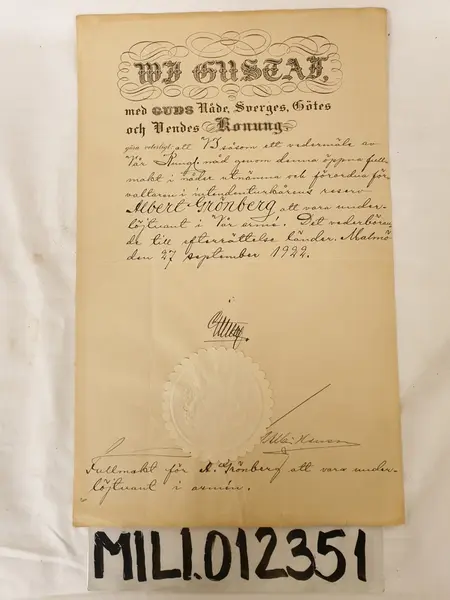 WI GUSTAF,
med GUDS Nåde, Sverges, Götes
och Vendes Konung,
göra veterligt: att Vi såsom ett vedermäle av
Vår Kungl. nåd genom denna öppna full-
makt i nåder utnämna och förordna för-
valtaren i intendenturkårens reserv
Albert Grönberg att vara under-
löjtnant i Vår armé. Det vederböran-
de till efterrättelse länder. Malmö
den 27 september 1922.
Fullmakt för A. Grönberg att vara under-
löjtnant i armén.
MILI.012351